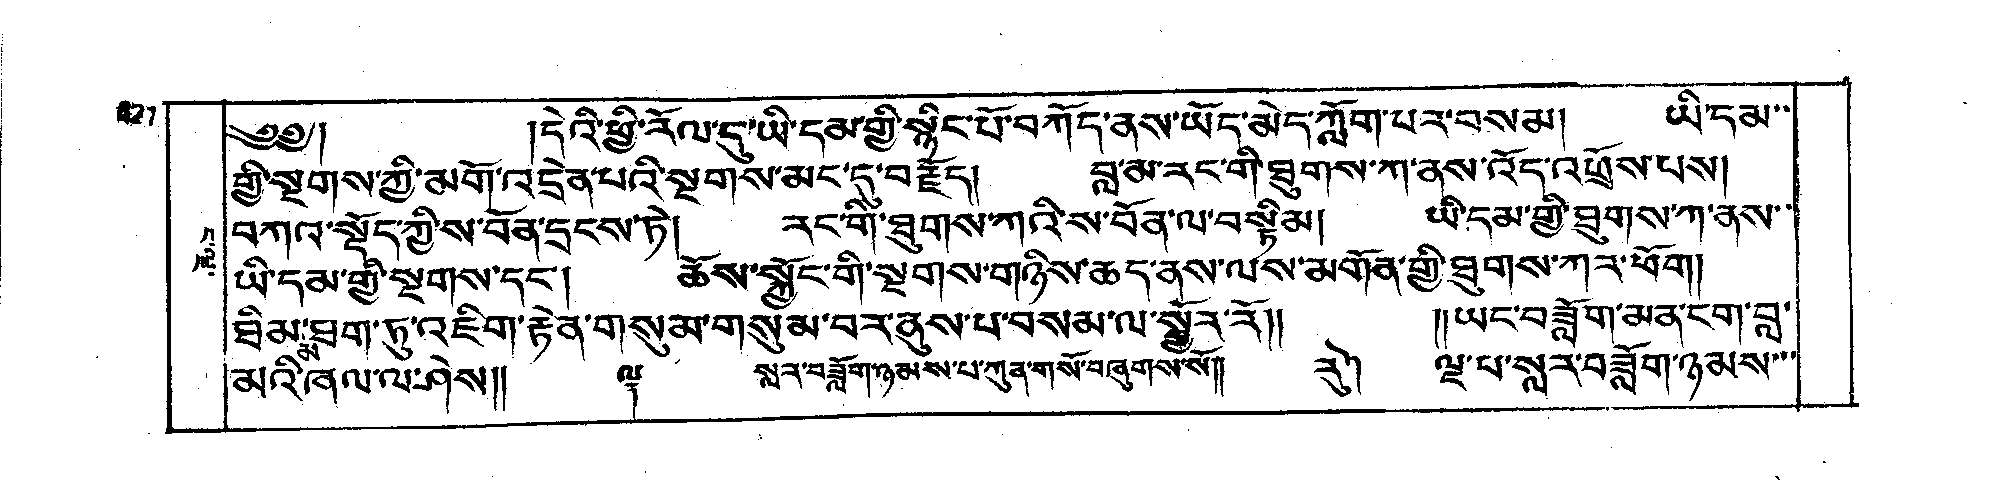 ༄༅། །དེའི་ཕྱི་རོལ་དུ་ཡི་དམ་གྱི་སྙིང་པོ་བཀོད་ནས་ཡོད་མེད་ཀློག་པར་བསམ། ཡི་དམ་
གྱི་སྔགས་ཀྱི་མགོ་འདྲེན་པའི་སྔགས་མང་དུ་བརྗོད། བླ་མ་རང་གི་ཐུགས་ཀ་ནས་འོད་འཕྲོས་པས།
བཀའ་སྡོད་ཀྱིས་བོན་དྲངས་ཏེ། རང་གི་ཐུགས་ཀའི་ས་བོན་ལ་བསྟིམ། ཡི་དམ་གྱི་ཐུགས་ཀ་ནས་
ཡི་དམ་གྱི་སྔགས་དང་། ཆོས་སྐྱོང་གི་སྔགས་གཉིས་ཆད་ནས་ལས་མགོན་གྱི་ཐུགས་ཀར་ཕོག།
ཐིམ་ཐག་ཏུ་འཇིག་རྟེན་གསུམ་གསུམ་བར་ནུས་པ་བསམ་ལ་སྦྱོར་རོ།། །།ཡང་བཟློག་མན་ངག་བླ་
མའི་ཞལ་ལ་ཤེས།། སླར་བཟློག་ཉམས་པ་ཀུན་གསོ་བཞུགས་སོ།། རུ། ལྔ་པ་སླར་བཟློག་ཉམས་